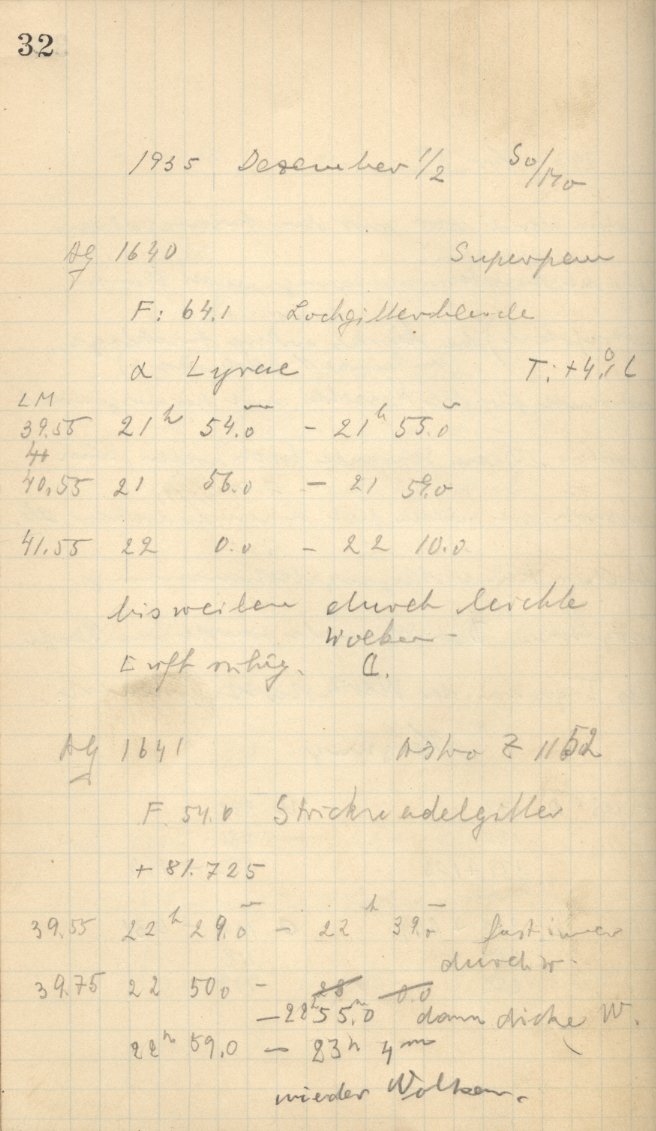 32
1935 Dezember 1/2 So/Mo
AG 1640 Superpan
F: 64.1 Lochgitterblende
α Lyrae T: +4.°1 C
LM
39.55 21h 54.m0 – 21h 55.m0
40.55 21 56.0 – 21 59.0
41.55 22 0.0 – 22 10.0
bisweilen durch leichte
Wolken –
Luft ruhig. ☾.
AG 1641 Astro Z 1152
F. 54.0 Stricknadelgitter
+ 81.725
39.55 22h 29.m0 – 22h 39.m0 fast immer
durch W.
39.75 22 50.0 – 23 0.0
– 22h 55.m0 dann dicke W.
22h 59.0 – 23h 4m
wieder Wolken.